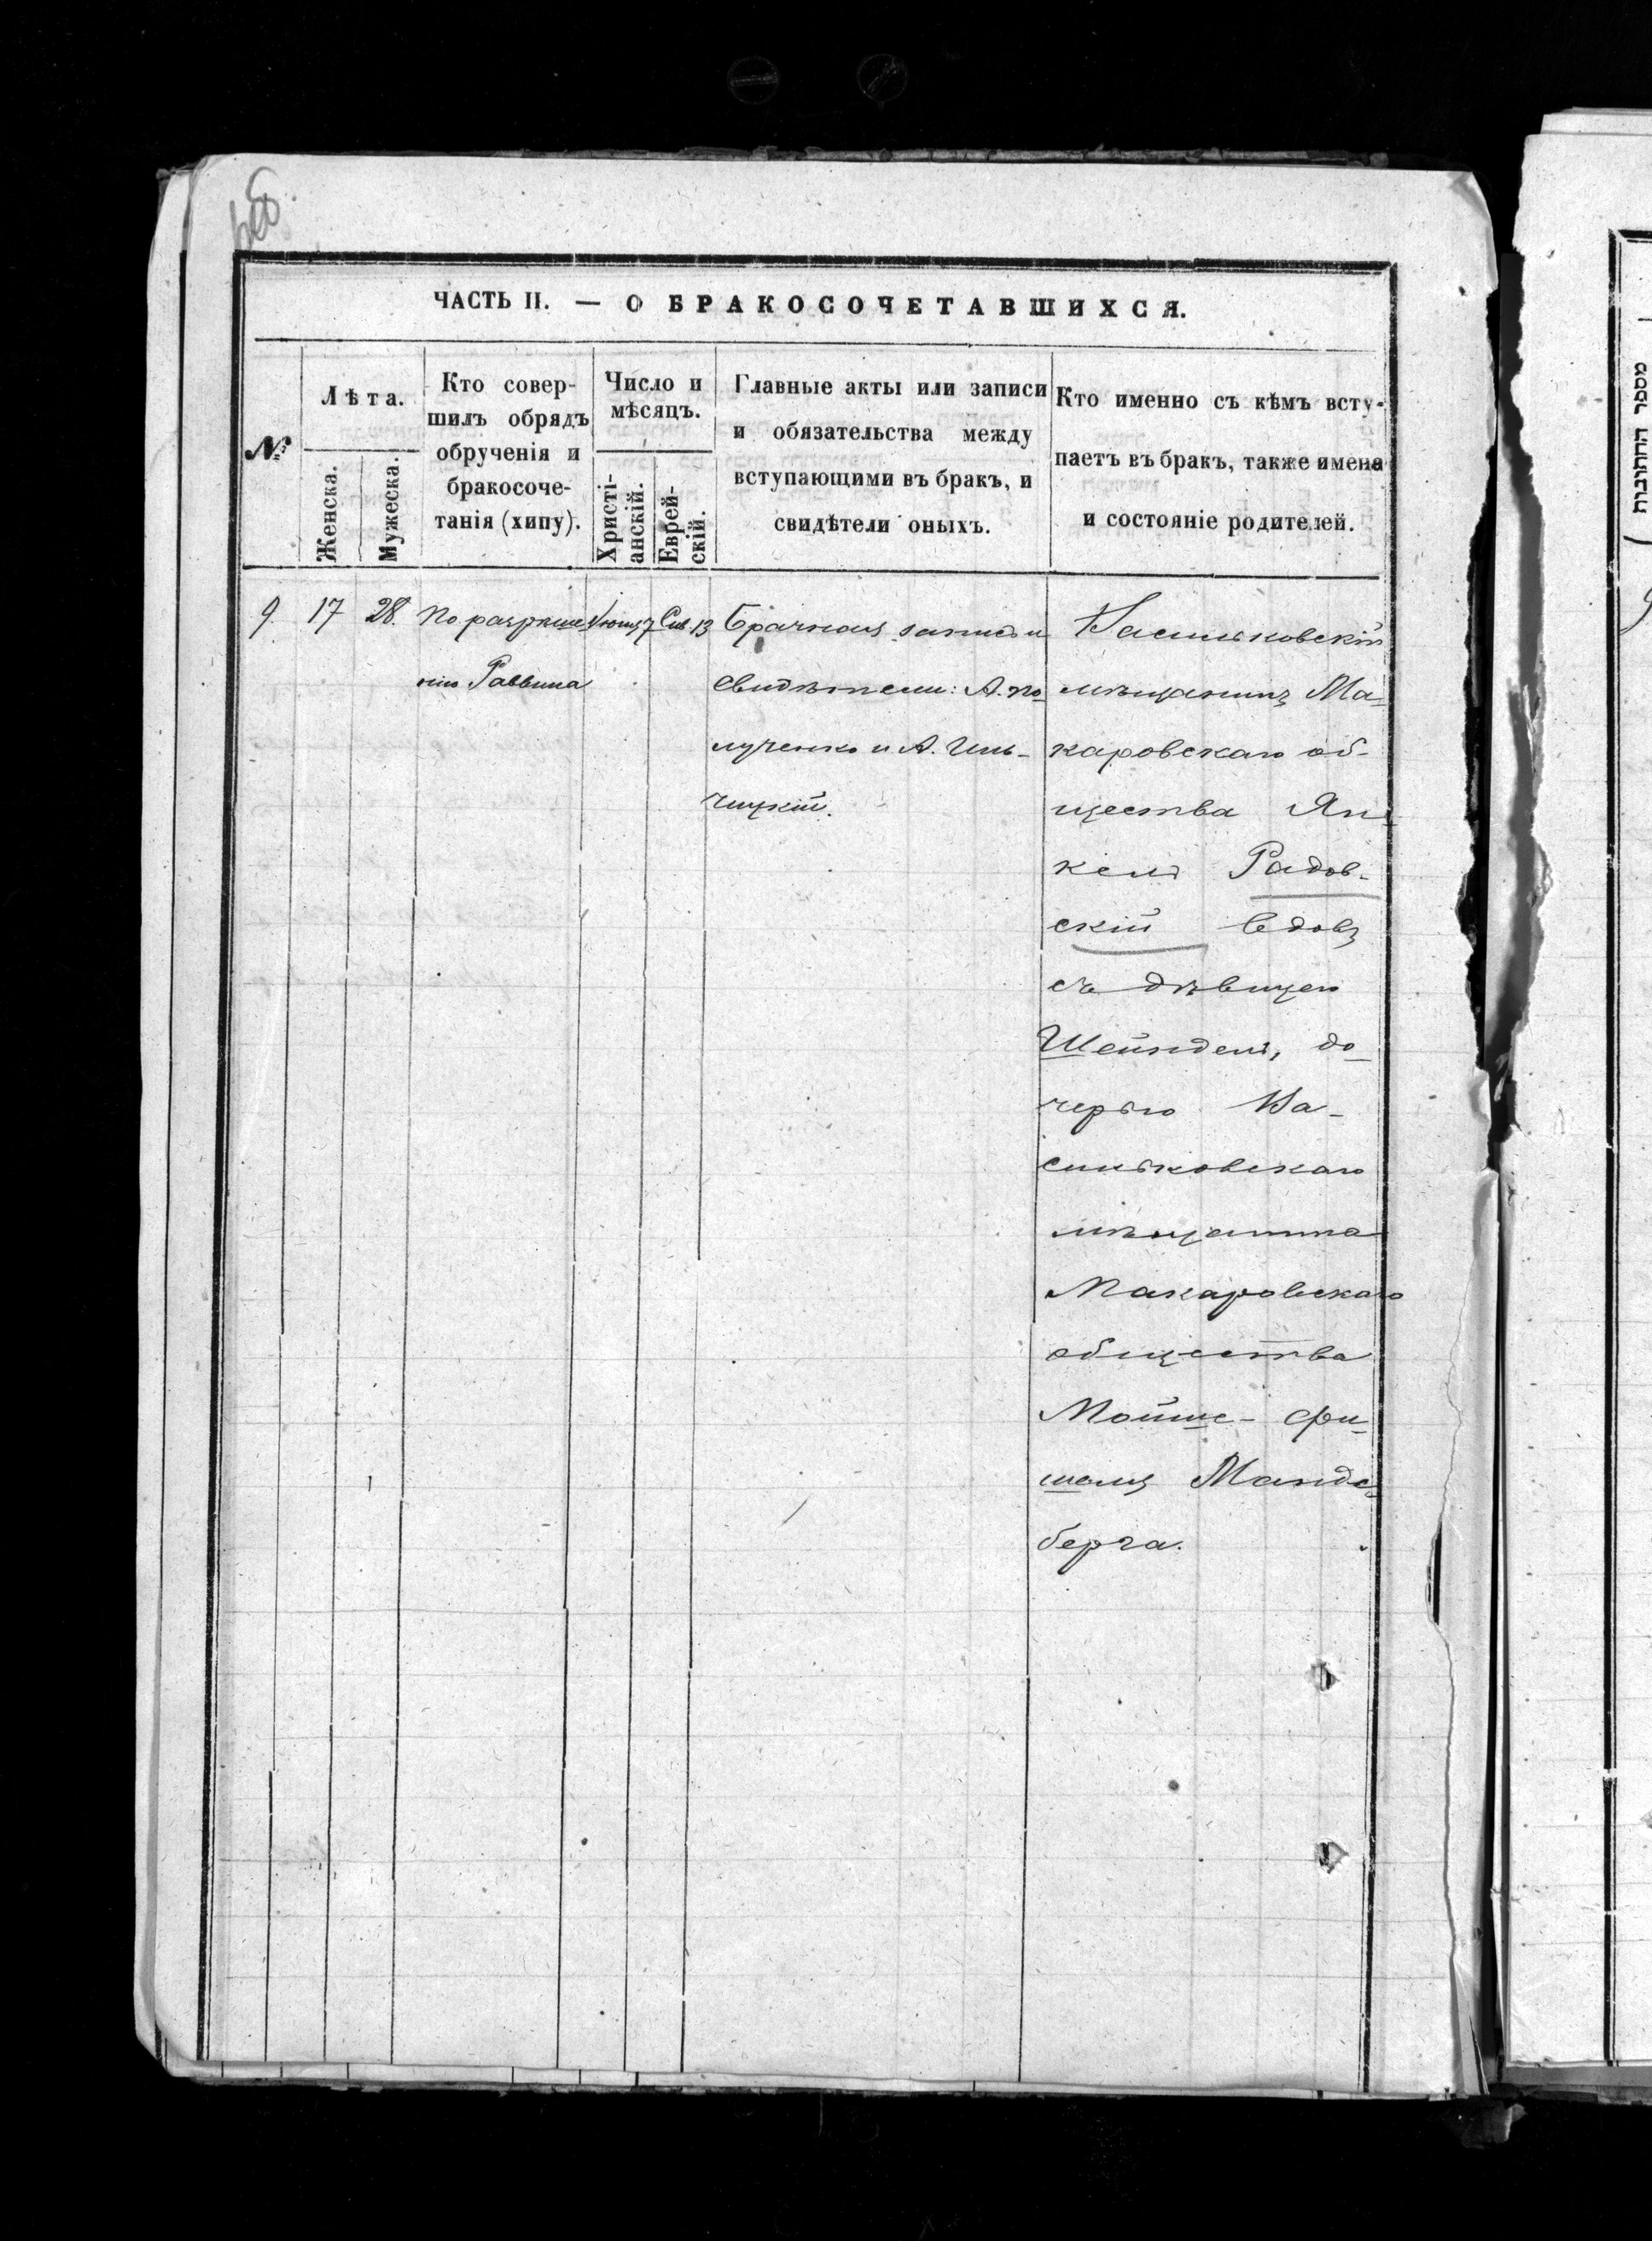 ЧАСТЬ II. — О БРАКОСОЧЕТАВШИХСЯ.
№
Лѣта.
Женска.
Мужеска.
Кто совер-
шилъ обрядъ
обрученія и
бракосоче-
танія (хипу).
Число и
мѣсяцъ.
Христі-
анскій.
Еврей-
скій.
Главные акты или записи
и обязательства между
вступающими въ бракъ, и
свидѣтели оныхъ.
Кто именно съ кѣмъ всту-
паетъ въ бракъ, также имена
и состояніе родителей.
9 17 28. По разрѣше
нію Раввина
Іюня 7 Сив. 13
Брачная запись и
свидѣтели: А. По
лученко и А. Иль-
чицкій.
Васильковскій
мѣщанинъ Ма-
каровскаго об-
щества Ян-
кель Радов-
скій вдовъ
съ дѣвицею
Шейндель, до-
черью Ва-
сильковскаго
мѣщанина
Макаровскаго
общества
Мойше-Фи
шелъ Манде-
берга.
מספר החתונות